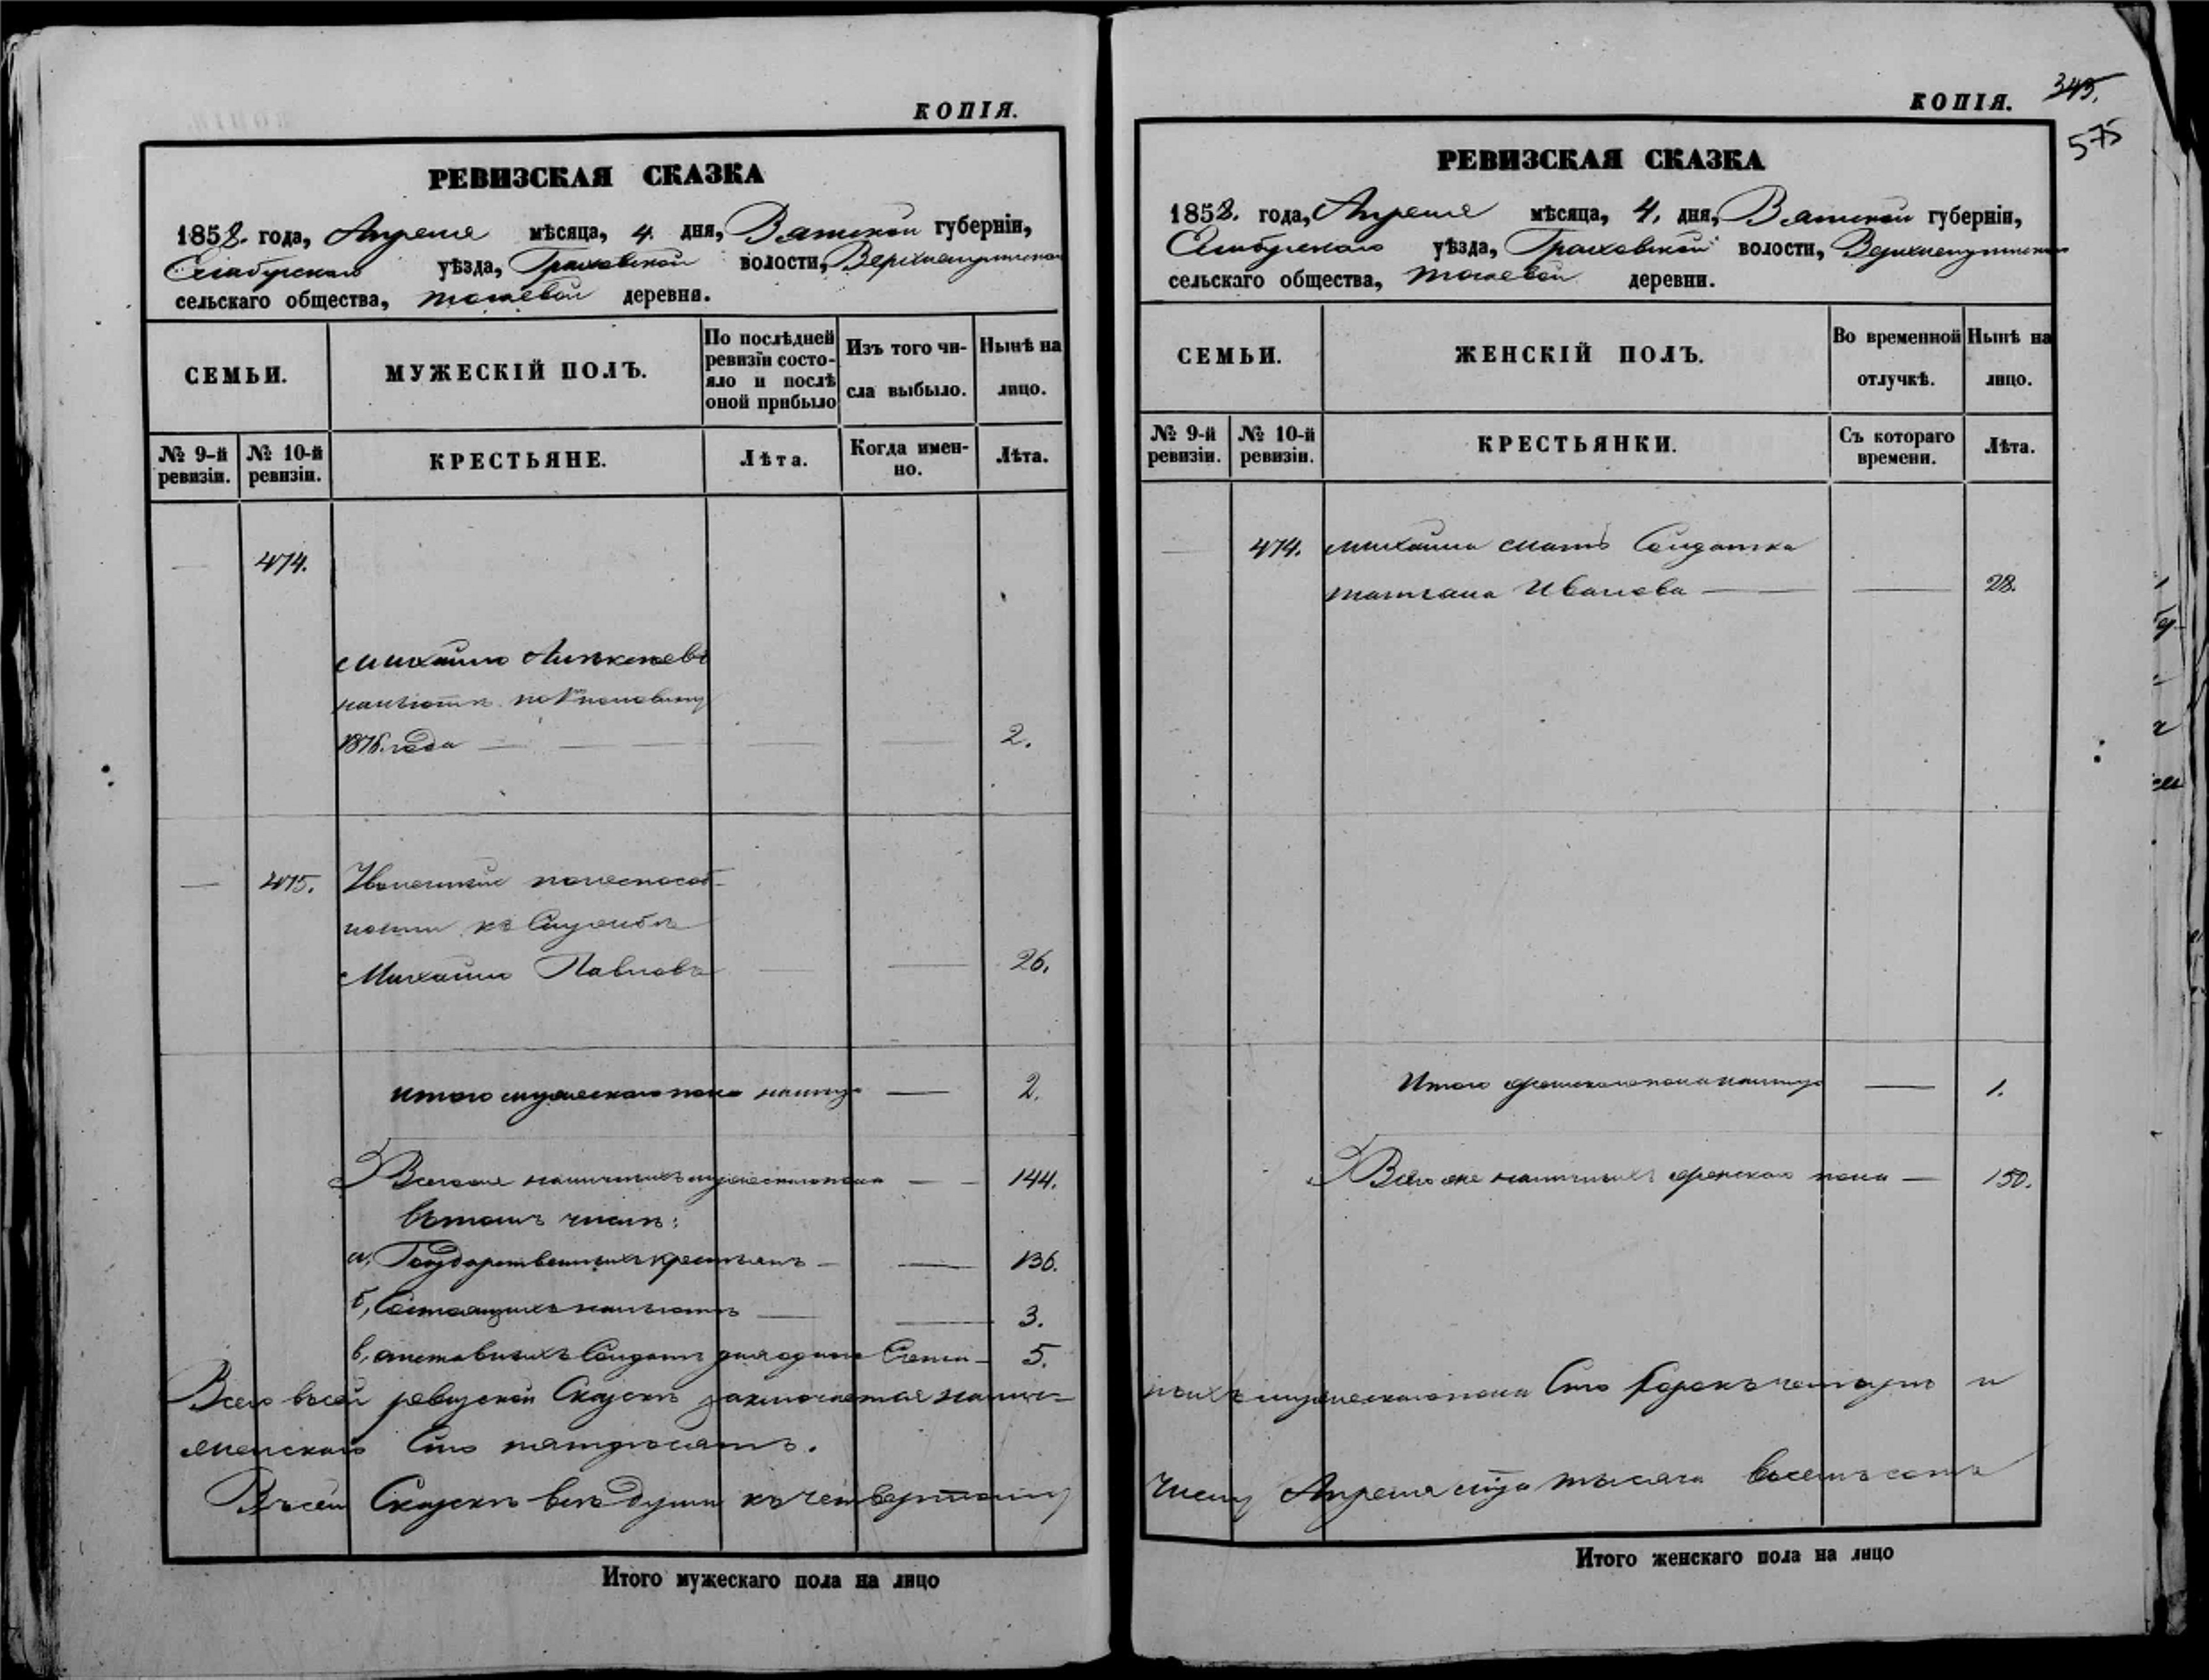 КОПІЯ.
РЕВИЗСКАЯ СКАЗКА
1858. года, Апреля мѣсяца, 4. дня, Вятской губерніи,
Елабугскаго уѣзда, Граховской волости,
сельскаго общества, деревни.
СЕМЬИ.
МУЖЕСКІЙ ПОЛЪ.
По послѣдней ревизіи состояло и послѣ оной прибыло
Изъ того числа выбыло.
Нынѣ на лицо.
№ 9-й ревизіи.
№ 10-й ревизіи.
КРЕСТЬЯНЕ.
Лѣта.
Когда именно.
Лѣта.
— 474.
Михайло
кантонистъ половину
1876. года — — — — — 2.
— 475. Уволенный по неспособ-
ности къ Службѣ
Михайло Павловъ — — 26.
Итого мужескаго пола налицо — 2.
Всего же наличныхъ мужескаго пола — — 144.
Въ томъ числѣ:
а, Государственныхъ крестьянъ — — 136.
б, Состоящихъ — — 3.
в, отставныхъ Солдатъ — 5.
Всего въ сей ревизской Сказкѣ заключается налич-
женскаго Сто пятьдесятъ.
Въ сей Сказкѣ всѣ души къ четвертому
Итого мужескаго пола на лицо
КОПІЯ.
345.
575
РЕВИЗСКАЯ СКАЗКА
1858. года, Апреля мѣсяца, 4, дня, Вятской губерніи,
Елабугскаго уѣзда, Граховской волости,
сельскаго общества, деревни.
СЕМЬИ.
ЖЕНСКІЙ ПОЛЪ.
Во временной отлучкѣ.
Нынѣ на лицо.
№ 9-й ревизіи.
№ 10-й ревизіи.
КРЕСТЬЯНКИ.
Съ котораго времени.
Лѣта.
— 474. Михайла мать Солдатка
Татьяна Иванова — — 28.
Итого женскаго пола налицо — 1.
Всего же наличныхъ женскаго пола — 150.
ныхъ мужескаго пола Сто сорокъ четыре и
числу Апреля тысяча восемьсотъ
Итого женскаго пола на лицо